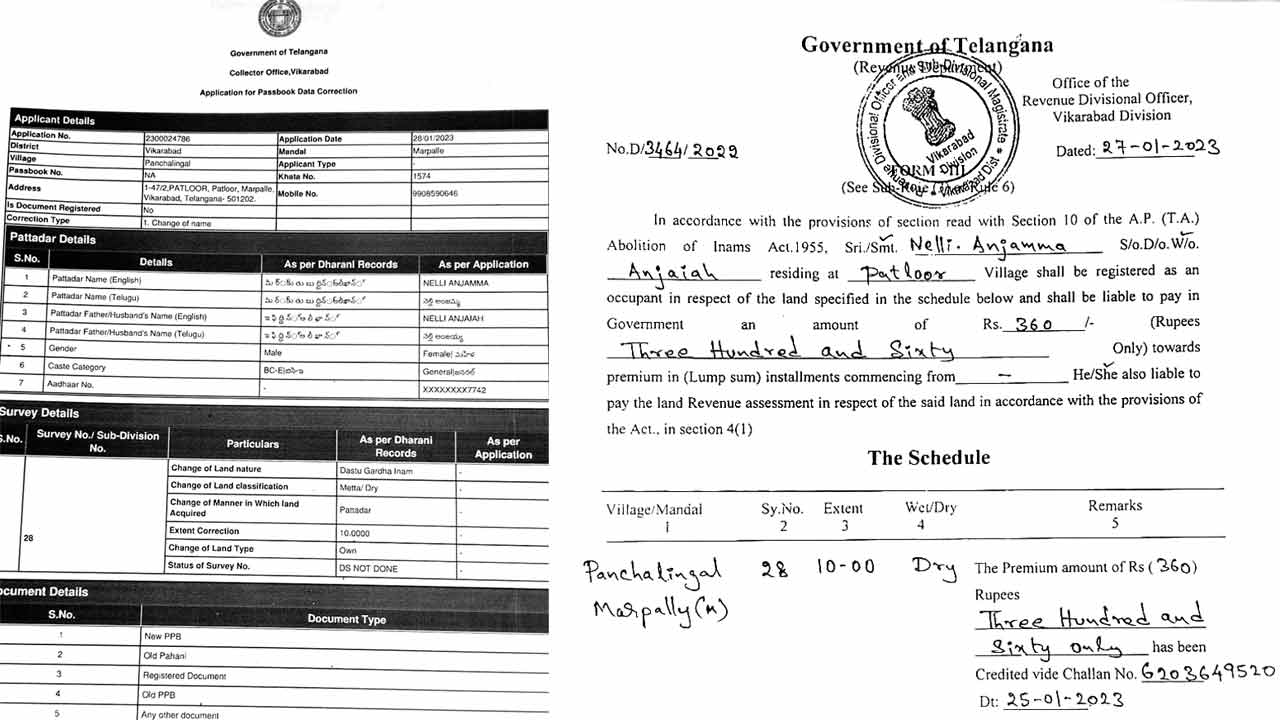 Government of Telangana
Collector Office,Vikarabad
Application for Passbook Data Correction
Applicant Details
Application No. 2300024786 Application Date 28/01/2023
District Vikarabad Mandal Marpalle
Village Panchalingal Applicant Type -
Passbook No. NA Khata No. 1574
Address 1-47/2,PATLOOR, Patloor, Marpalle, Vikarabad, Telangana- 501202. Mobile No. 9908590646
Is Document Registered No
Correction Type 1. Change of name
Pattadar Details
S.No. Details As per Dharani Records As per Application
1 Pattadar Name (English) NELLI ANJAMMA
2 Pattadar Name (Telugu) నెల్లి అంజమ్మ
3 Pattadar Father/Husband's Name (English) NELLI ANJAIAH
4 Pattadar Father/Husband's Name (Telugu) నెల్లి అంజయ్య
5 Gender Male Female/ స్త్రీ
6 Caste Category BC-E/బిసి-ఇ General/జనరల్
7 Aadhaar No. - XXXXXXXX7742
Survey Details
S.No. Survey No./ Sub-Division No. Particulars As per Dharani Records As per Application
28
Change of Land nature Dastu Gardha Inam -
Change of Land classification Metta/ Dry -
Change of Manner in Which land Acquired Pattadar -
Extent Correction 10.0000 -
Change of Land Type Own -
Status of Survey No. DS NOT DONE -
ocument Details
S.No. Document Type
1 New PPB
2 Old Pahani
3 Registered Document
4 Old PPB
5 Any other document
Government of Telangana
(Revenue Department)
Vikarabad Division
Office of the
Revenue Divisional Officer,
Vikarabad Division
No.D/3464/2022 Dated: 27-01-2023
FORM III
(See Sub-Rule Rule 6)
In accordance with the provisions of section read with Section 10 of the A.P. (T.A.)
Abolition of Inams Act.1955, Sri./Smt. Nelli. Anjamma S/o.D/o.W/o.
Anjaiah residing at Patloor Village shall be registered as an
occupant in respect of the land specified in the schedule below and shall be liable to pay in
Government an amount of Rs. 360 /- (Rupees
Three Hundred and Sixty Only) towards
premium in (Lump sum) installments commencing from - He/She also liable to
pay the land Revenue assessment in respect of the said land in accordance with the provisions of
the Act., in section 4(1)
The Schedule
Village/Mandal Sy.No. Extent Wet/Dry Remarks
1 2 3 4 5
Panchalingal 28 10-00 Dry The Premium amount of Rs (360)
Marpally(M) Rupees
Three Hundred and
Sixty only has been
Credited vide Challan No. 6203649520
Dt: 25-01-2023